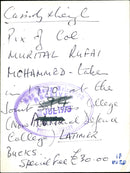 Cassidy & Leigh
Pix of Col
MURITAL RUFAI
MOHAMMED - taken
in 1970 at the
Joint College
(now Defence
College) LATIMER
BUCKS
Special Fee £30.00